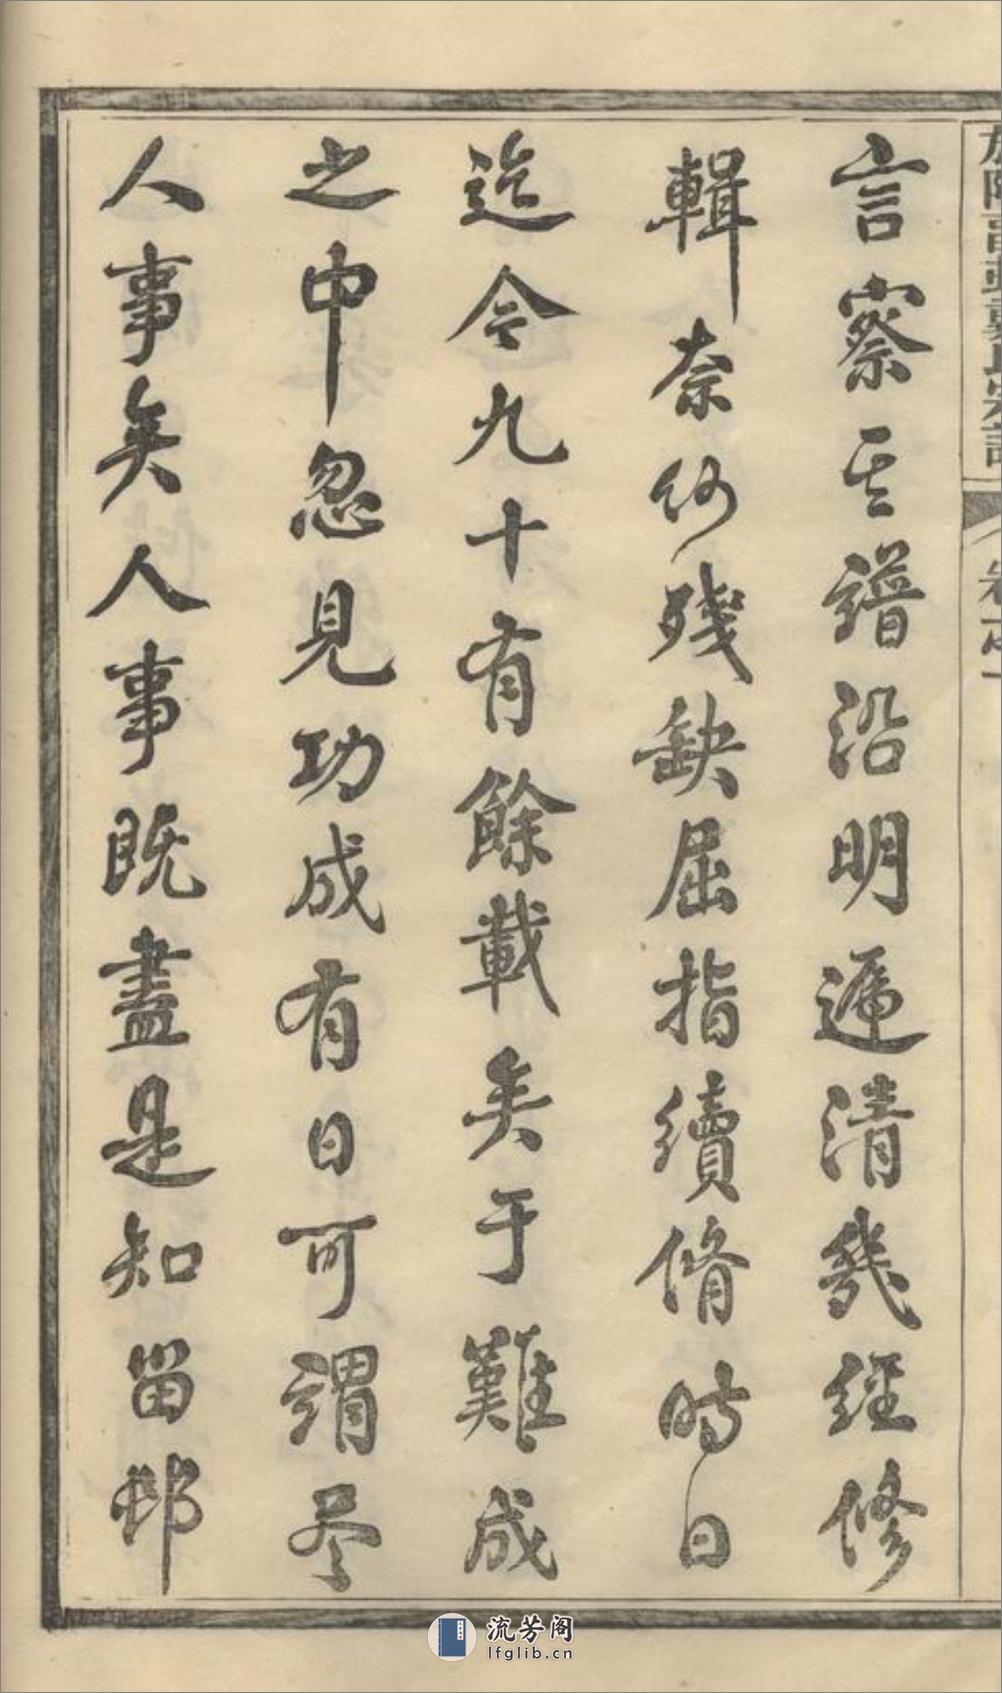 言察其譜沿明遞清幾經修
輯奈何殘缺屈指續脩時日
迄今九十有餘載矣于難成
之中忽見功成有日可謂尽
人事矣人事既盡是知留邨
卷之一
流芳阁
lfglib.cn